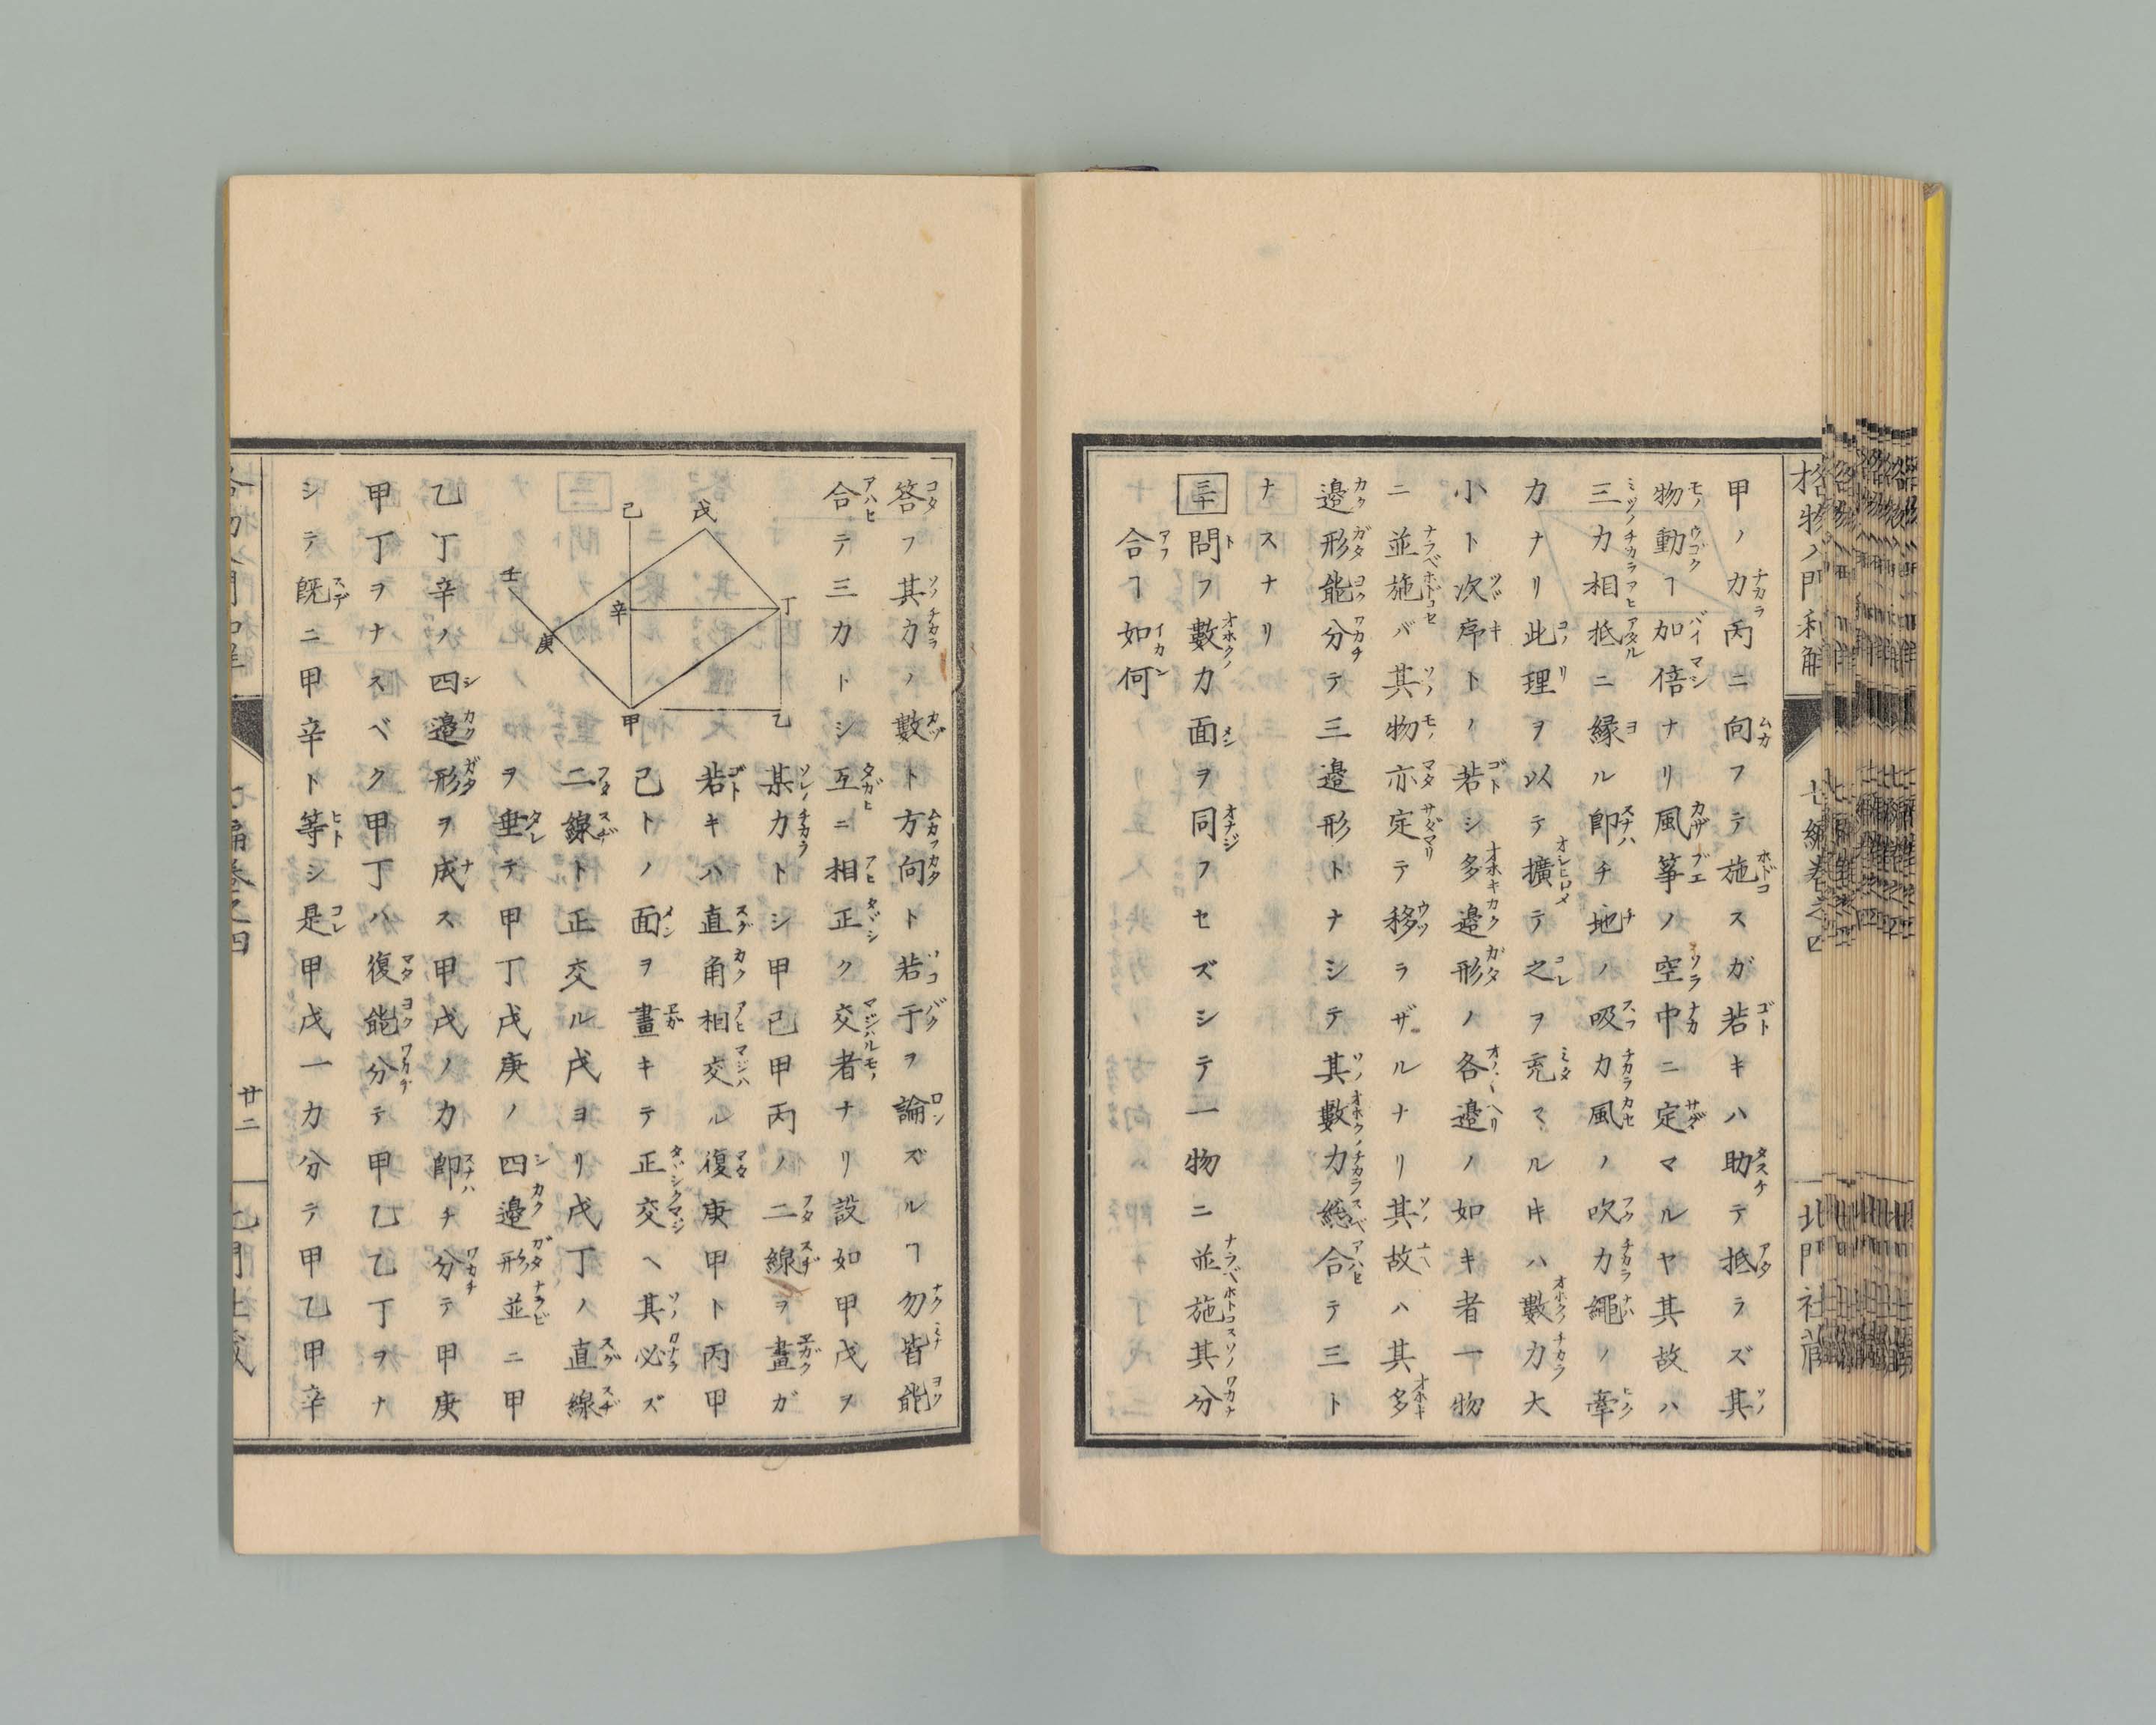 格物入門和解
七編卷之四
北門社藏
甲ノ力丙ニ向フテ施スガ若キハ助テ抵ラズ其
物動ヿ加倍ナリ風箏ノ空中ニ定マルヤ其故ハ
三力相抵ニ縁ル即チ地ノ吸力風ノ吹力繩ノ牽
力ナリ此理ヲ以テ擴テ之ヲ充マルキハ數力大
小ト次序トノ若シ多邉形ノ各邉ノ如キ者一物
ニ並施バ其物亦定テ移ラザルナリ其故ハ其多
邉形能分テ三邉形トナシテ其數力総合テ三ト
ナスナリ
三十 問フ數力面ヲ同フセズシテ一物ニ並施其分
合ヿ如何
答フ其力ノ數ト方向ト若干ヲ論ズルヿ勿皆能
合テ三力トシ互ニ相正ク交者ナリ設如甲戊ヲ
某力トシ甲己甲丙ノ二線ヲ畫ガ
若キハ直角相交ル復庚甲ト丙甲
己トノ面ヲ畫キテ正交ヘ其必ズ
二線ト正交ル戊ヨリ戊丁ノ直線
ヲ垂テ甲丁戊庚ノ四邉形並ニ甲
乙丁辛ノ四邉形ヲ成ス甲戊ノ力即チ分テ甲庚
甲丁ヲナスベク甲丁ハ復能分テ甲乙乙丁ヲナ
シテ既ニ甲辛ト等シ是甲戊一力分テ甲乙甲辛
己
戊
丁
辛
壬
庚
甲
乙
廿二